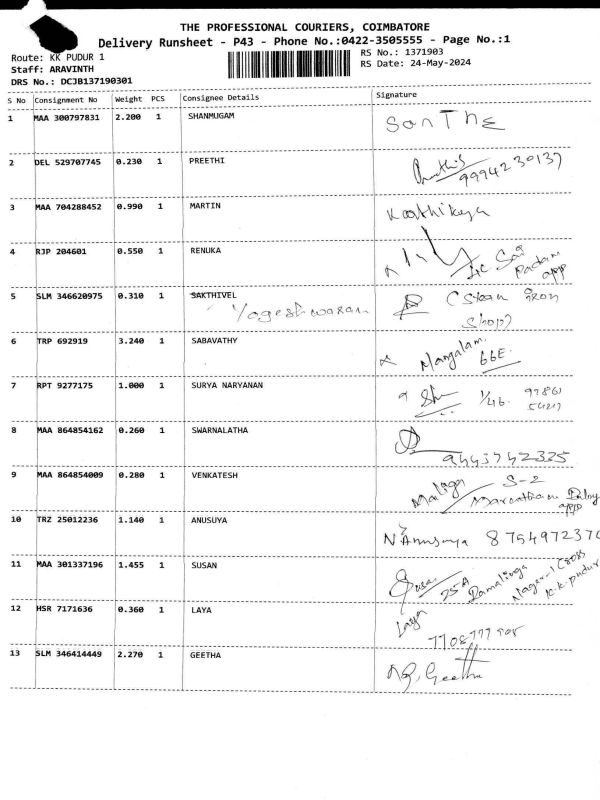 THE PROFESSIONAL COURIERS, COIMBATORE
Delivery Runsheet - P43 - Phone No.:0422-3505555 - Page No.:1
Route: KK PUDUR 1
RS No.: 1371903
Staff: ARAVINTH
RS Date: 24-May-2024
DRS No.: DCJB137190301
S No Consignment No Weight PCS Consignee Details Signature
1 MAA 300797831 2.200 1 SHANMUGAM SanTHE
2 DEL 529707745 0.230 1 PREETHI
9994230137
3 MAA 704288452 0.990 1 MARTIN Kaathikeya
4 RJP 204601 0.550 1 RENUKA
Sai
Padam
app
5 SLM 346620975 0.310 1 SAKTHIVEL
Yogeshwaran
(Steam iron
Shop)
6 TRP 692919 3.240 1 SABAVATHY
Mangalam
66E.
7 RPT 9277175 1.000 1 SURYA NARYANAN
1/46.
8 MAA 864854162 0.260 1 SWARNALATHA
9443742335
9 MAA 864854009 0.280 1 VENKATESH
Maliga S-2
app
10 TRZ 25012236 1.140 1 ANUSUYA
N Anusuya 875497237
11 MAA 301337196 1.455 1 SUSAN
Susan 75A Ramalinga
Nagar-1 Cross
K.K.pudur
12 HSR 7171636 0.360 1 LAYA
Laya
13 SLM 346414449 2.270 1 GEETHA
Geetha